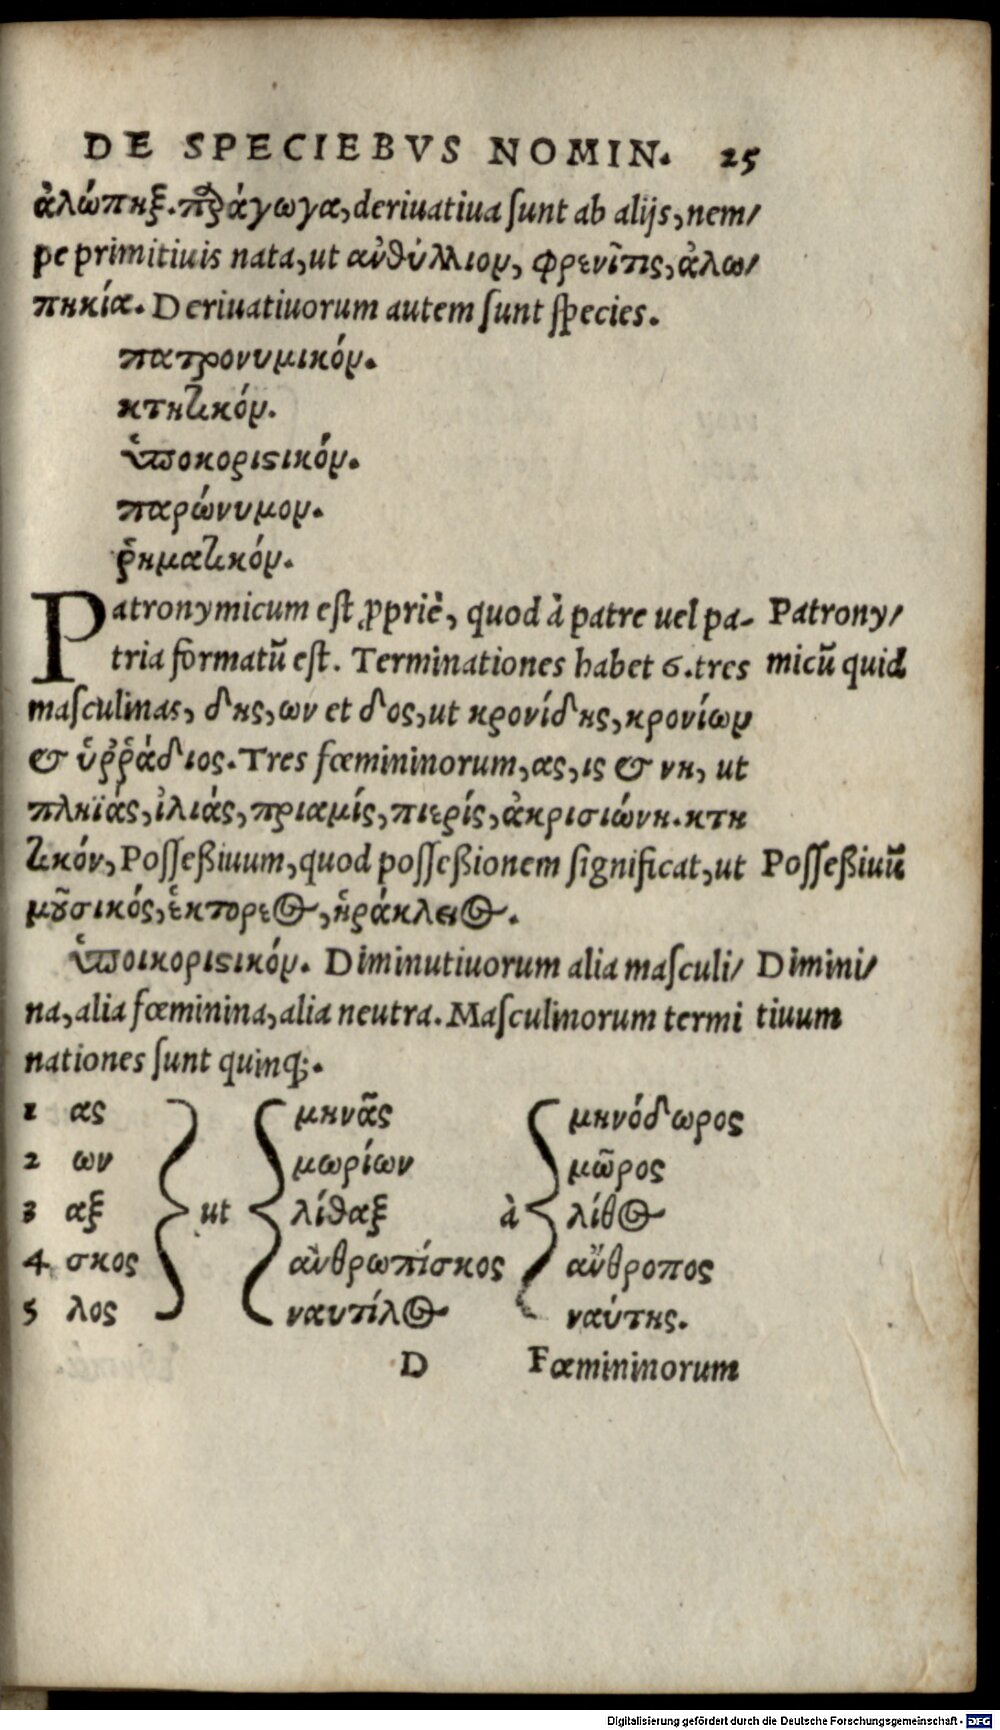 DE SPECIEBVS NOMIN. 25
ἀλώπηξ. παράγωγα, deriuatiua ſunt ab alijs, nem/
pe primitiuis nata, ut ἀνθύλλιον, φρενῖτις, ἀλω/
πηκία. Deriuatiuorum autem ſunt ſpecies.
πατρονυμικόν.
κτητικόν.
ὑποκοριστικόν.
παρώνυμον.
ῥηματικόν.
Patronymicum eſt ꝓpriè, quod à patre uel pa- Patrony/
tria formatū eſt. Terminationes habet 6. tres micū quid
maſculinas, δης, ων et δος, ut κρονίδης, κρονίων
& ὑῤῥάδιος. Tres fœmininorum, ας, ις & νη, ut
πληϊάς, ἰλιάς, πριαμίς, πιερίς, ἀκρισιώνη. κτη
τικόν, Poſſeßiuum, quod poſſeßionem ſignificat, ut Poſſeßiuū
μȣσικός, ἑκτορεος, ἡράκλειος.
ὑποικοριστικόν. Diminutiuorum alia maſculi/ Dimini/
na, alia fœminina, alia neutra. Maſculinorum termi tiuum
nationes ſunt quinq;.
1 ας μηνᾶς μηνόδωρος
2 ων μωρίων μῶρος
3 αξ ut λίθαξ à λίθος
4 σκος ἀνθρωπίσκος ἄνθροπος
5 λος ναυτίλος ναύτης.
D Fœmininorum
Digitalisierung gefördert durch die Deutsche Forschungsgemeinschaft - DFG